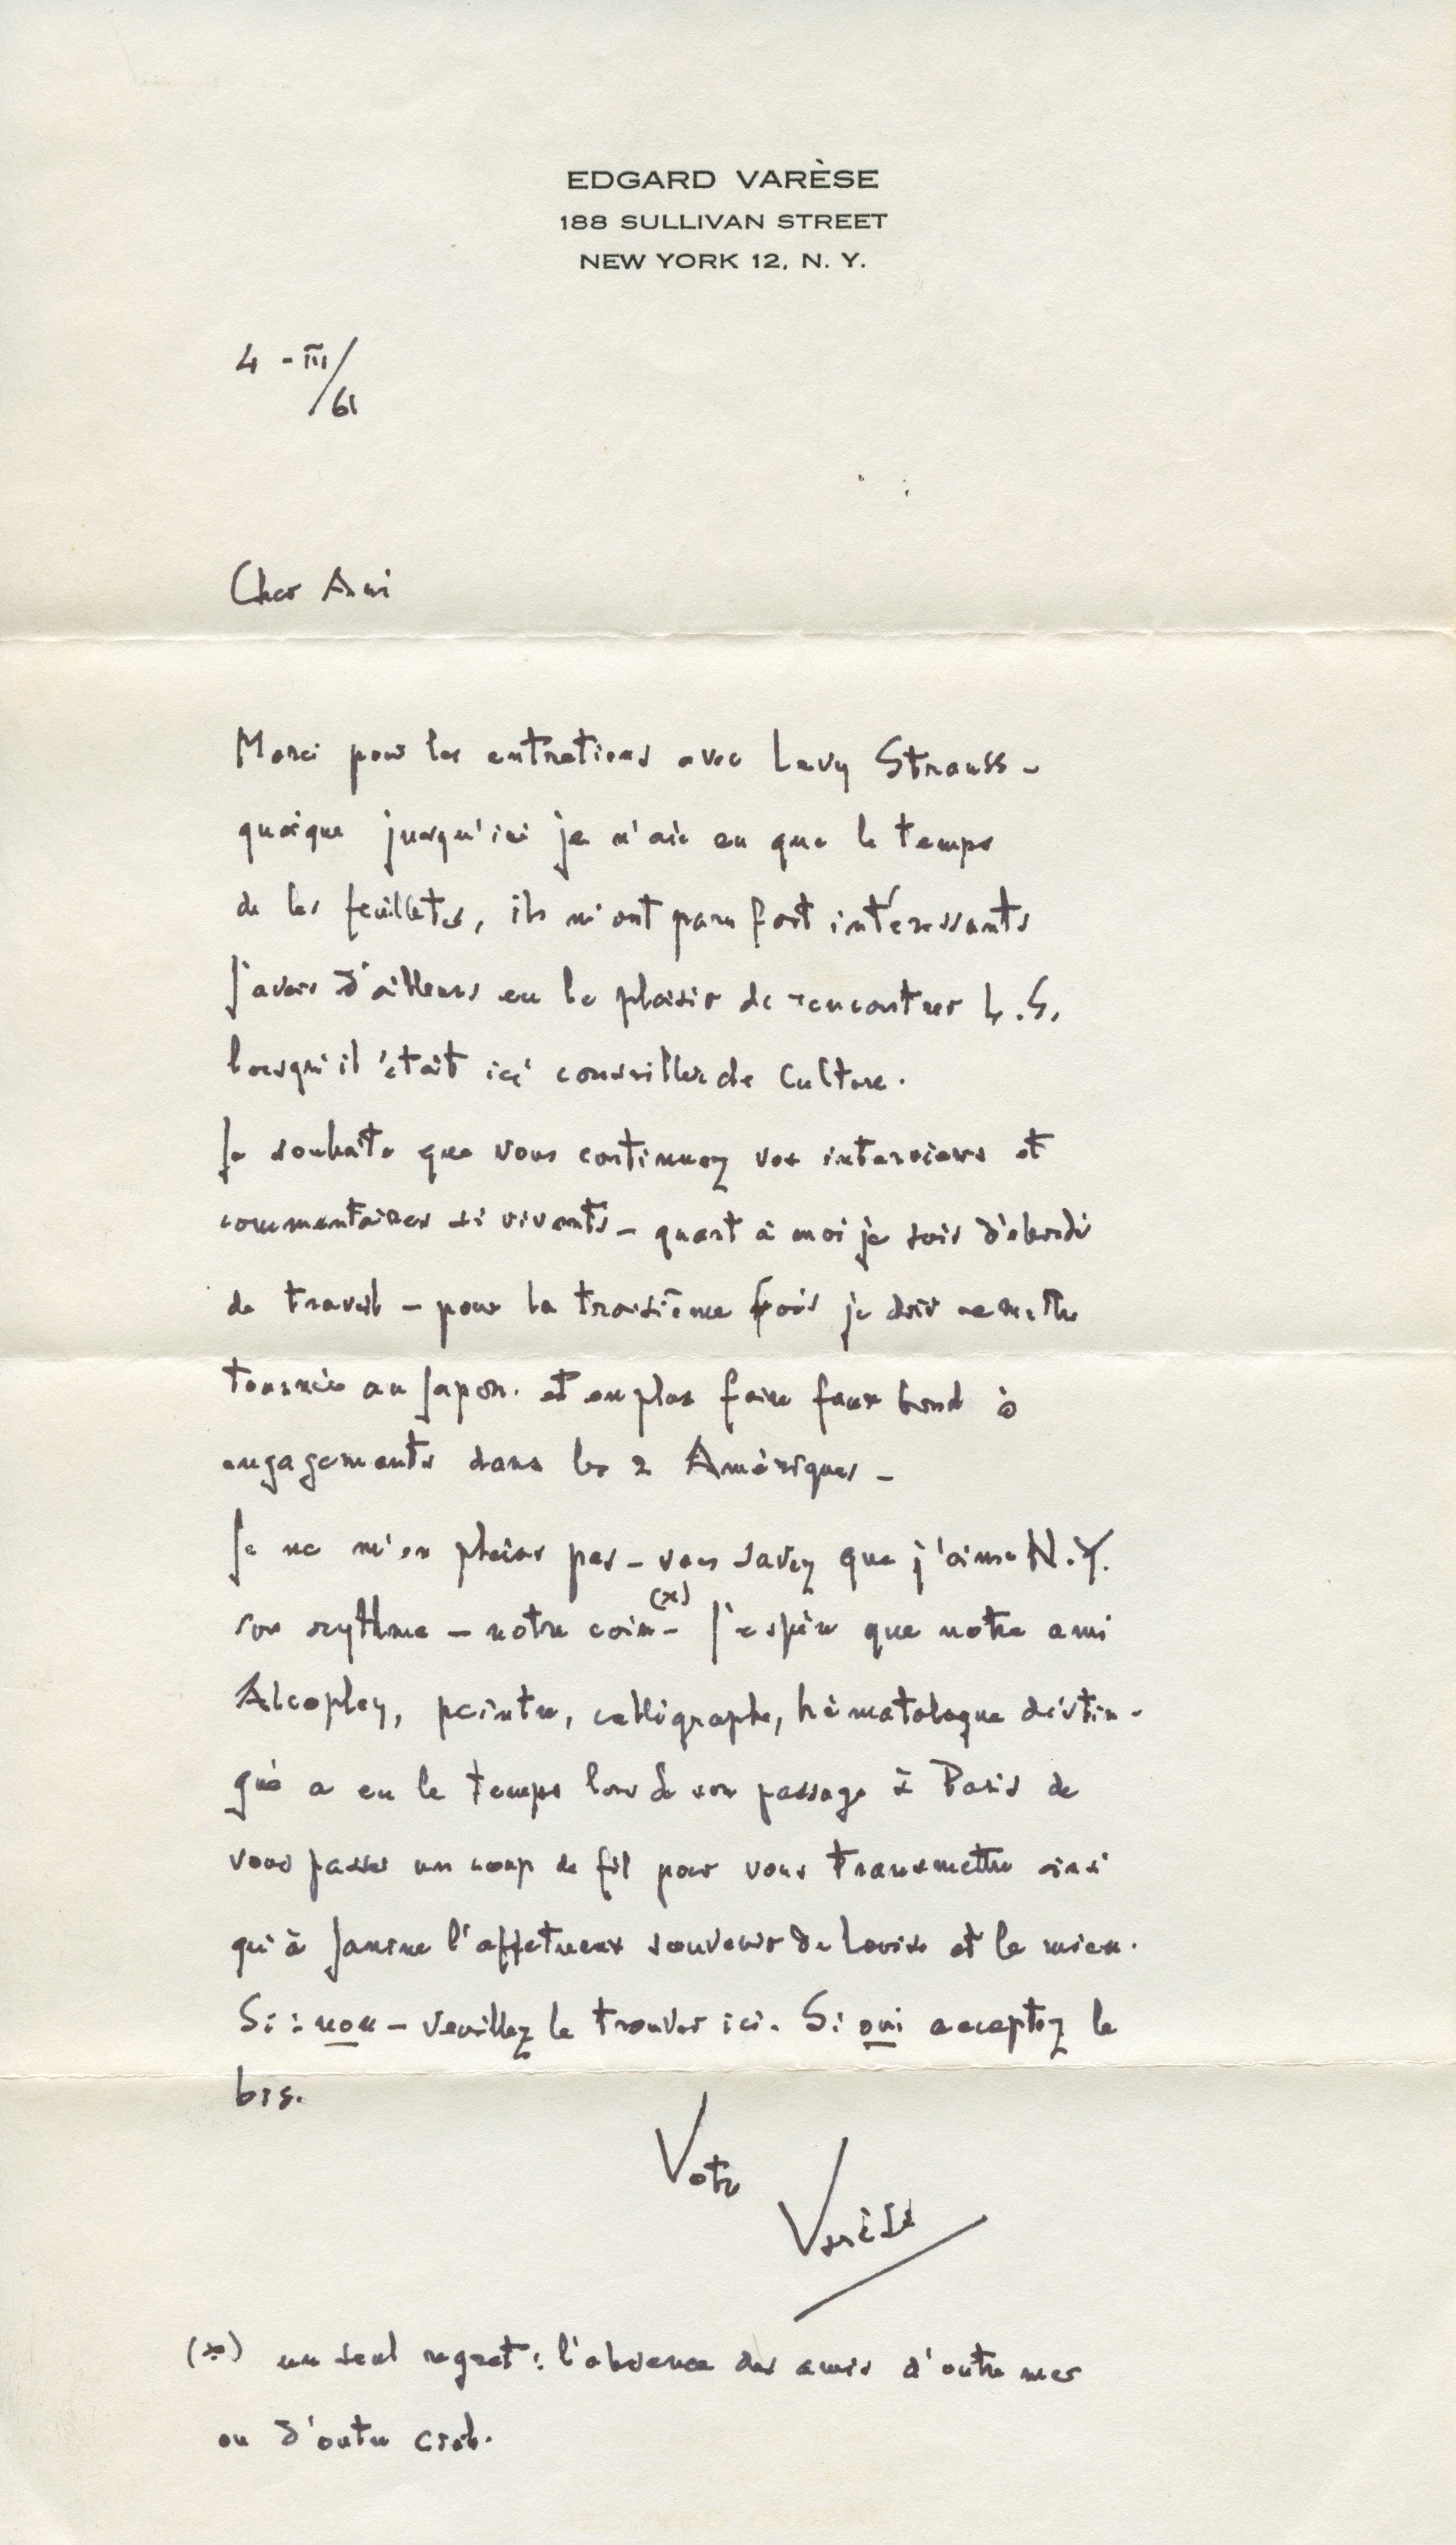 EDGARD VARÈSE
188 SULLIVAN STREET
NEW YORK 12, N. Y.
4 - III/61
Cher Ami
Merci pour les entretiens avec Levy Strauss -
quoique jusqu'ici je n'aie eu que le temps
de les feuilleter, ils m'ont paru fort intéressants
J'avais d'ailleurs eu le plaisir de rencontrer L.S.
lorsqu'il était ici conseiller de Culture.
Je souhaite que vous continuez vos interviews et
commentaires si vivants - quant à moi je suis
de travail - pour la troisième fois je dois remettre
tournée au Japon. et en plus faire faux bond à
engagements dans les 2 Amériques -
Je ne m'en plains pas - vous savez que j'aime N.Y.
son rythme - notre coin (x) - J'espère que notre ami
Alcopley, peintre, calligraphe, hématologue distin-
gué a eu le temps lors de son passage à Paris de
vous passer un coup de fil pour vous transmettre ainsi
qu'à Janine l'affetueux souvenir de Louise et le mien.
Si : non - veuillez le trouver ici. Si oui acceptez le
bis.
Votre
Varèse
(x) un seul regret : l'absence des amis d'outre mer
ou d'outre ciel.